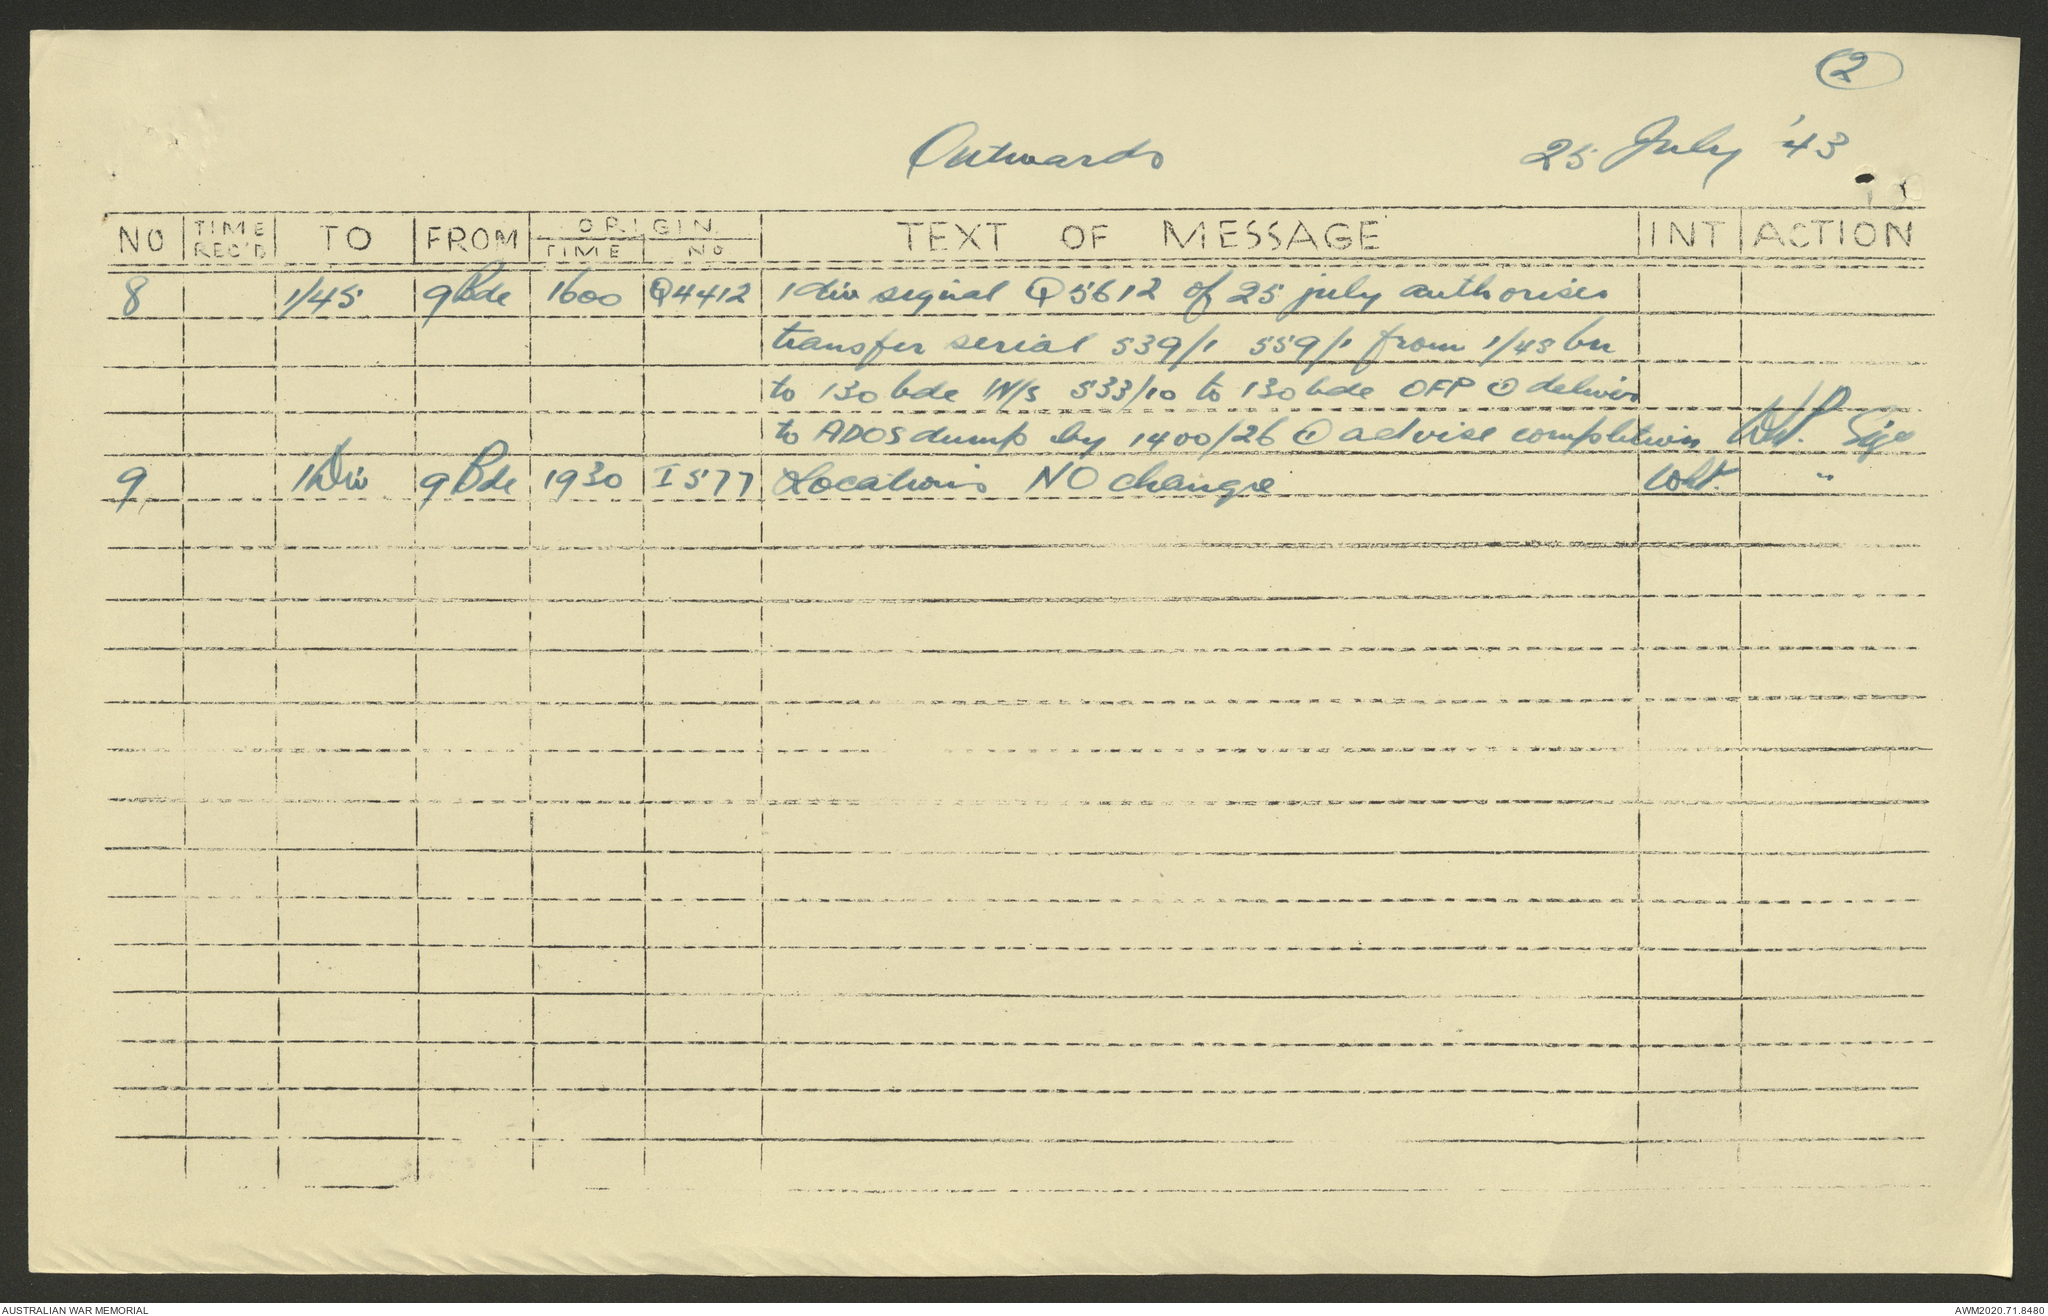 2
Outwards 25 July '43
NO TIME REC'D TO FROM ORIGIN TIME NO TEXT OF MESSAGE INT ACTION
8 1/45 9 Bde 1600 Q4412 1 div signal Q5612 of 25 july authorises
transfer serial 539/1 559/1 from 1/45 bn
to 130 bde W/S 533/10 to 130 bde OFP ⊙ deliver
to ADOS dump by 1400/26 ⊙ advise completion Sigs
9 1 Div 9 Bde 1930 I577 Locations NO change "
AUSTRALIAN WAR MEMORIAL AWM2020.71.8480